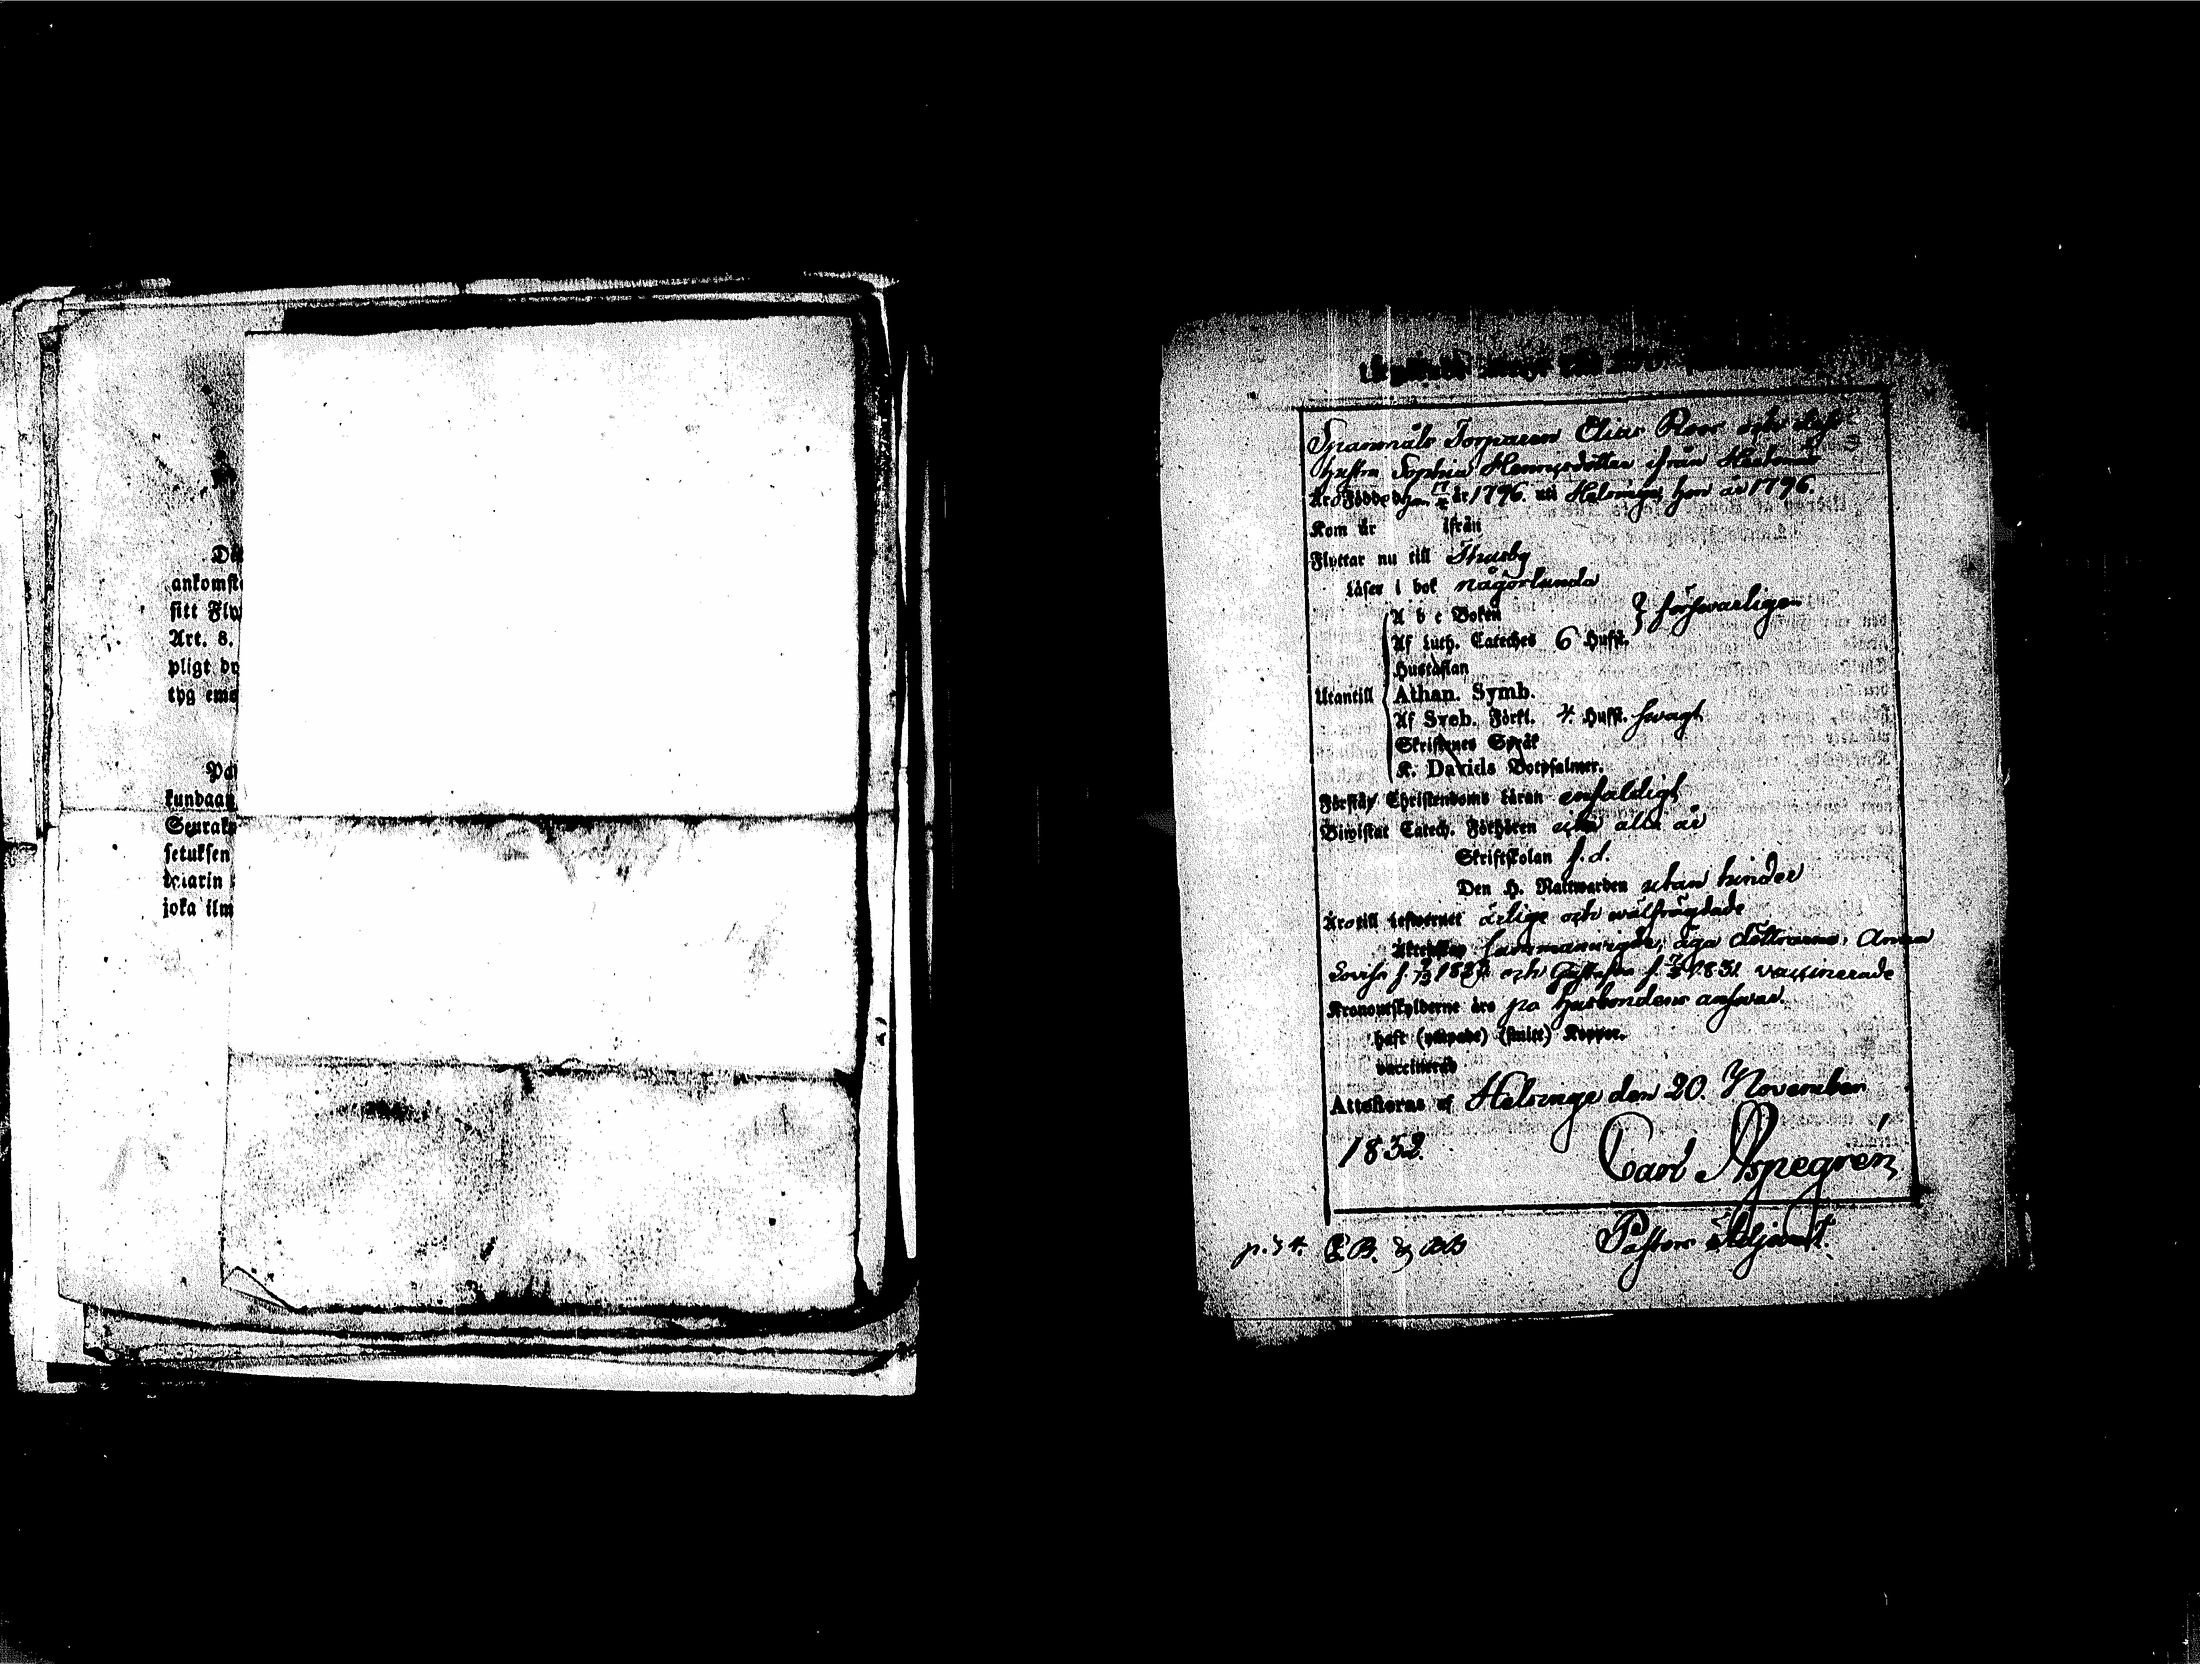 ankomst
sitt Fly
Art. 8.
pligt
tyg
Pa
kundaan
Seurak
setuksen
joka ilm
Spanmåls Torparen Elias Roos och dess
hustru Sophia Henricsdotter ifrån
Äro Födde han 17/4 år 1796 uti Helsinge, hon år 1796.
Kom år ifrån
Flyttar nu till Thusby
Läser i bok någorlunda
A b c Boken } förswarligen
Af Luth. Cateches 6 Hufst.
Hustaflan
Utantill Athan. Symb.
Af Sveb. Förkl. 4. Hufst. swagt
Skriftenes Språk
K. Davids Botpsalmer.
Förstår Christendoms Läran enfaldigt
Biwistat Catech. Förhören alla år
Skriftskolan s. d.
Den H. Nattwarden utan hinder
Äro till Lefwernet ärlige och wälfrägdade
Äktenskap sammanwigde, äga döttrarne: Anna
Lovisa f. och Gustafva f. 1831 vaccinerade
Kronoutskylderne äro på husbondens answar.
haft (ympade) (smitt) Koppor.
vaccinerad
Attesteras af Helsinge den 20. November
1832.
Carl Aspegrén
Pastors Adjunct.
p. 34.